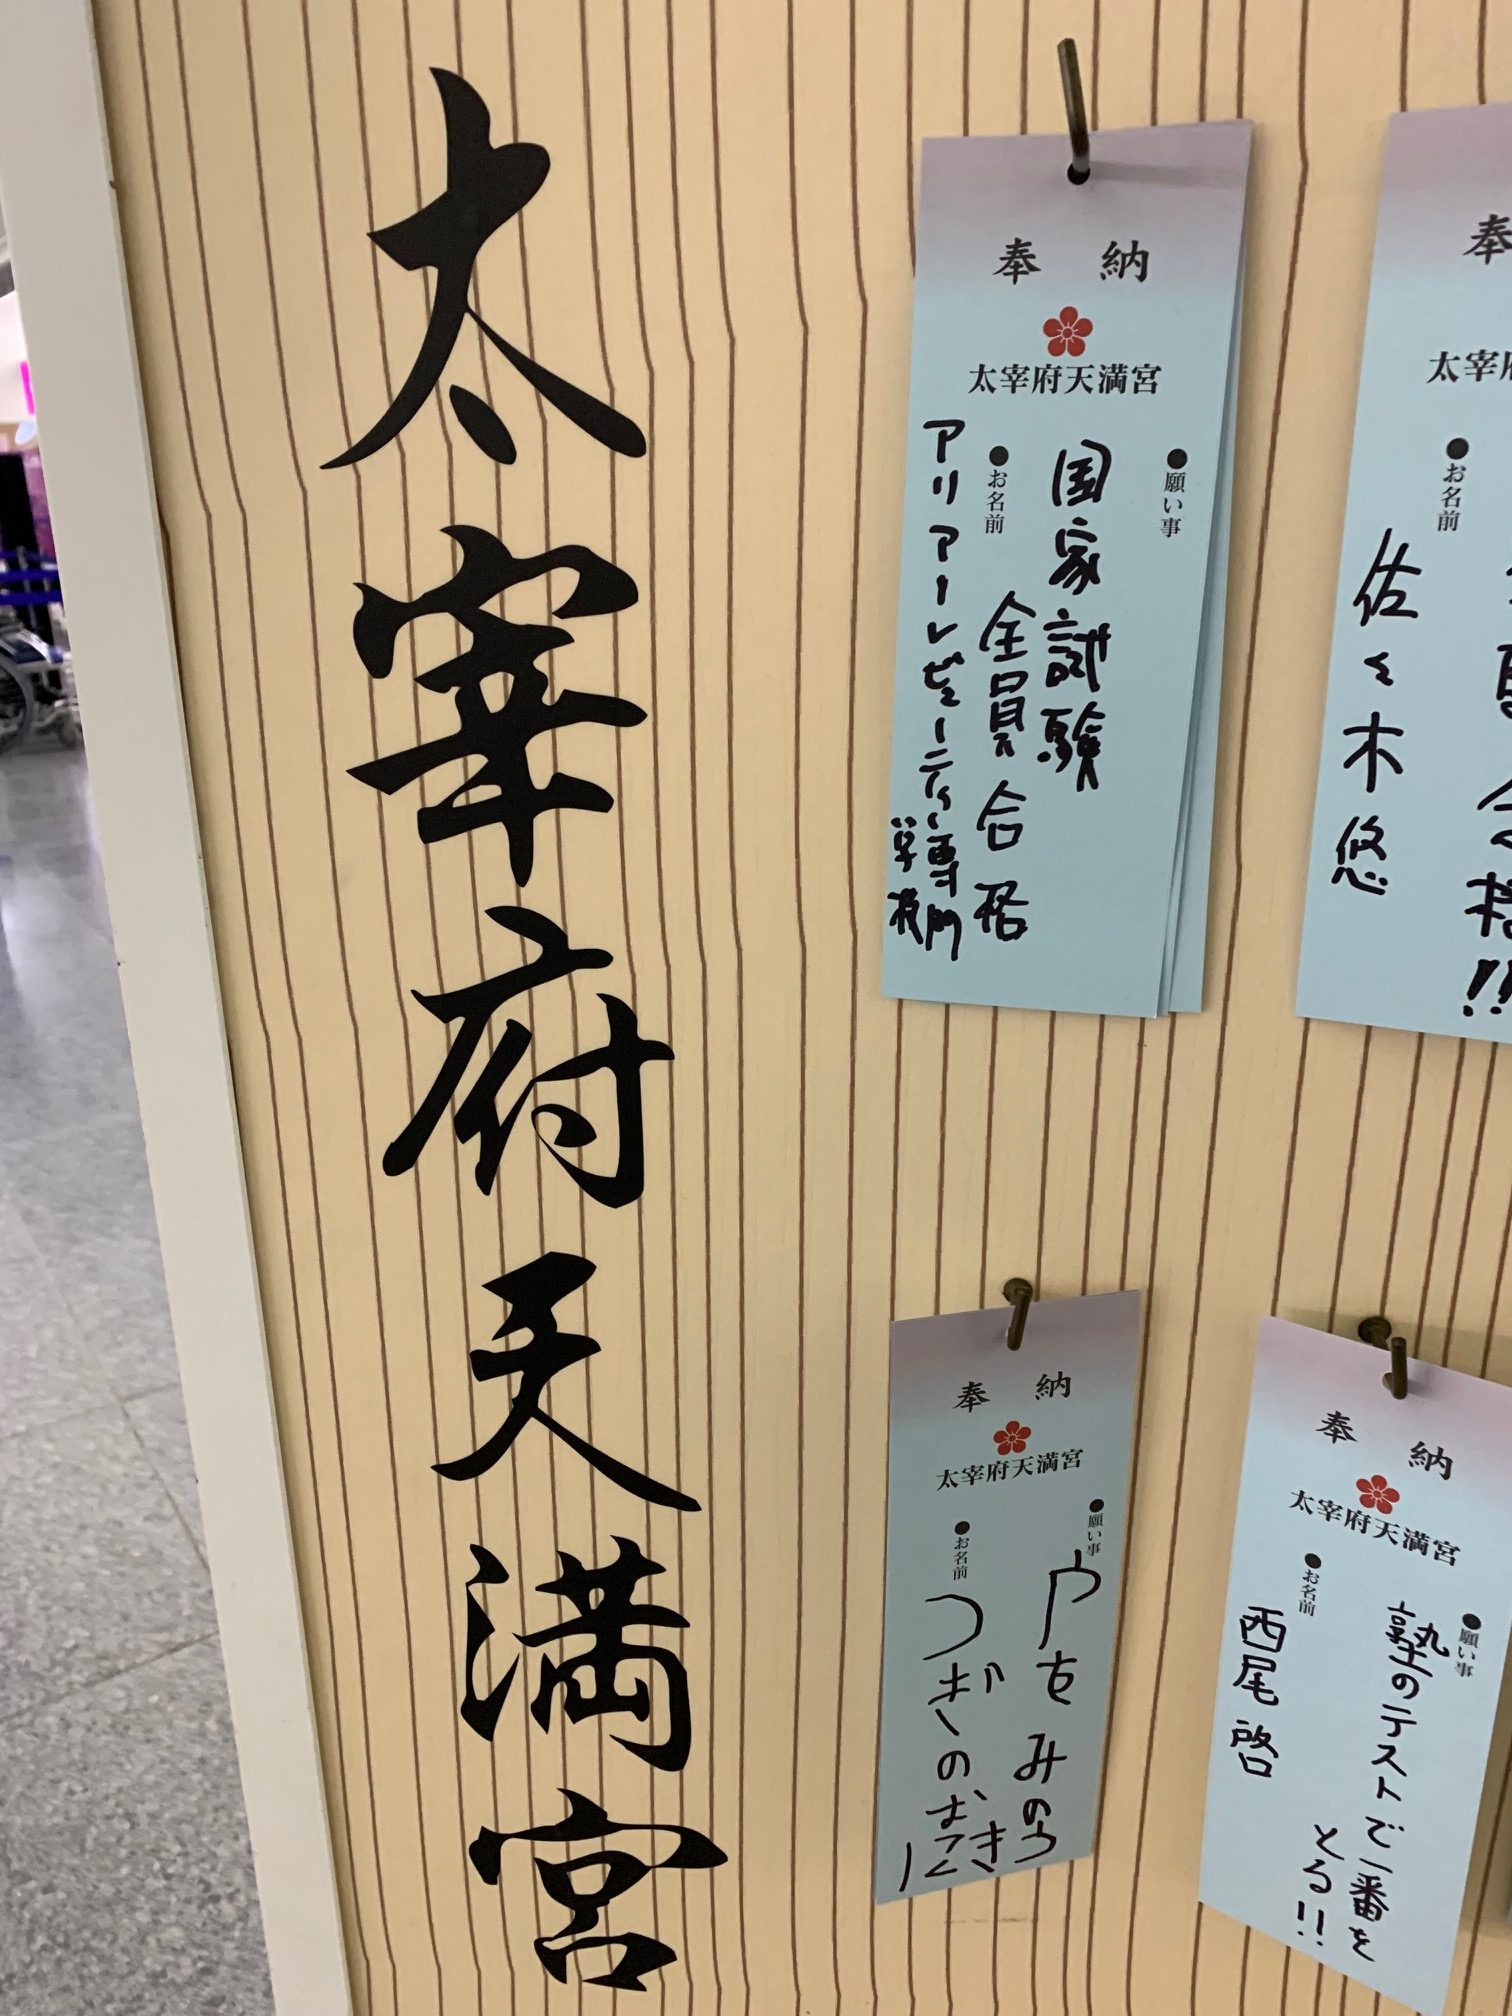 太宰府天満宮
奉納
太宰府天満宮
●願い事
国家試験
全員合格
●お名前
アリアーレビューティー専門
学校
奉
太宰
●お名前
佐々木悠
奉納
太宰府天満宮
●願い事
●お名前
つぎのおき
奉納
太宰府天満宮
●願い事
塾のテストで一番を
とる!!
●お名前
西尾啓